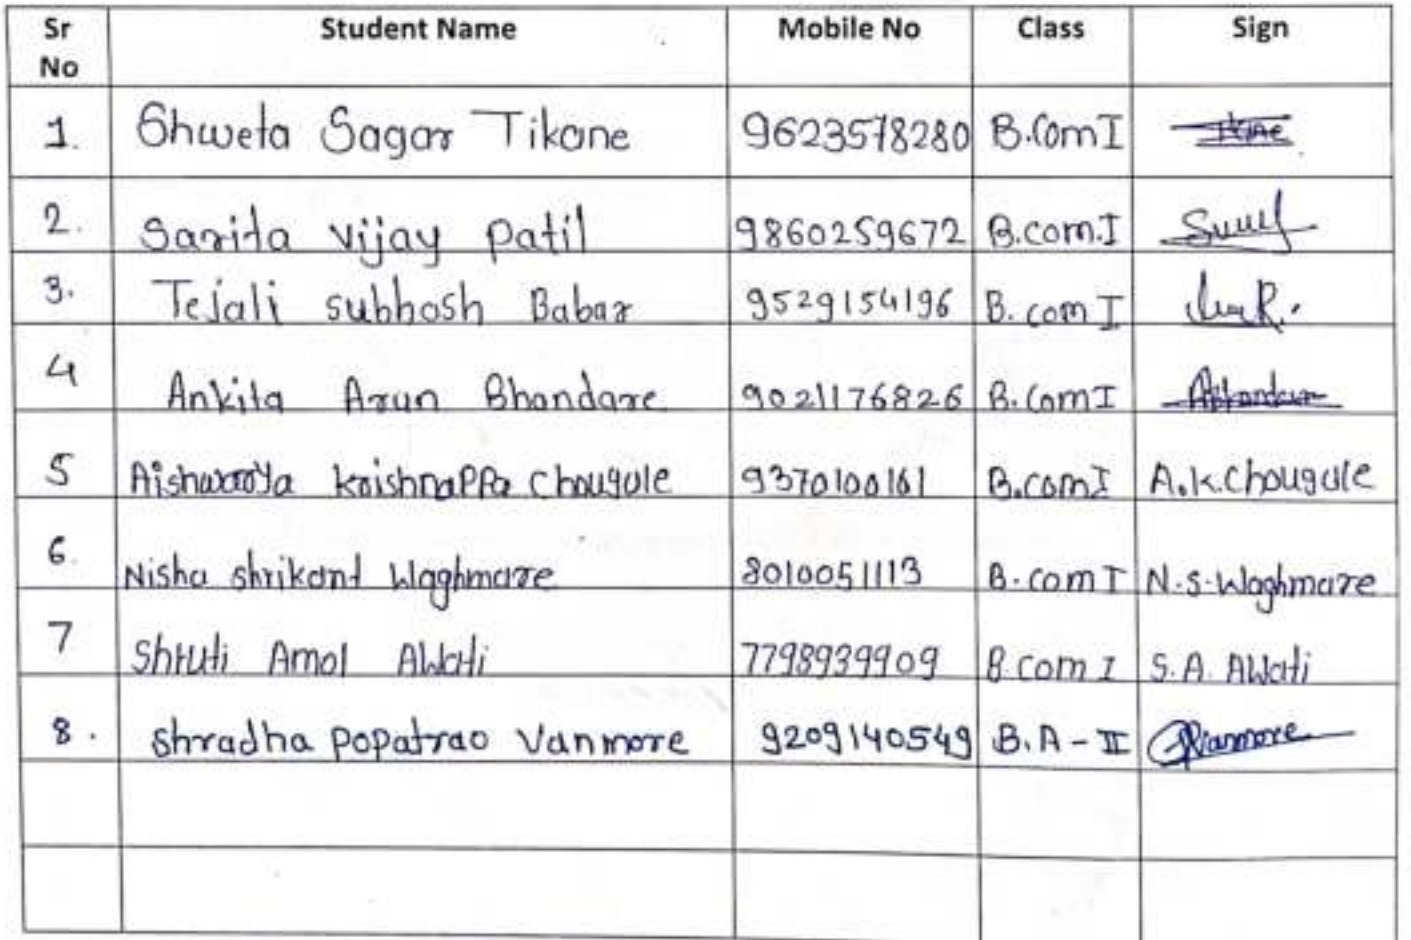 Sr No Student Name Mobile No Class Sign
1. Shweta Sagar Tikane 9623578280 B.Com I
2. Sarita vijay patil 9860259672 B.com.I
3. Tejali subhash Babar 9529154196 B. com I
4 Ankita Arun Bhandare 9021176826 B.Com I
5 Aishwarya krishnappa chougule 9370100161 B.com I A.K.Chougule
6. Nisha shrikant Waghmare 8010051113 B.com I N.S.Waghmare
7 Shruti Amol AWati 7798939909 B.com I S.A. AWati
8. shradha popatrao vanmore 9209140549 B.A - II